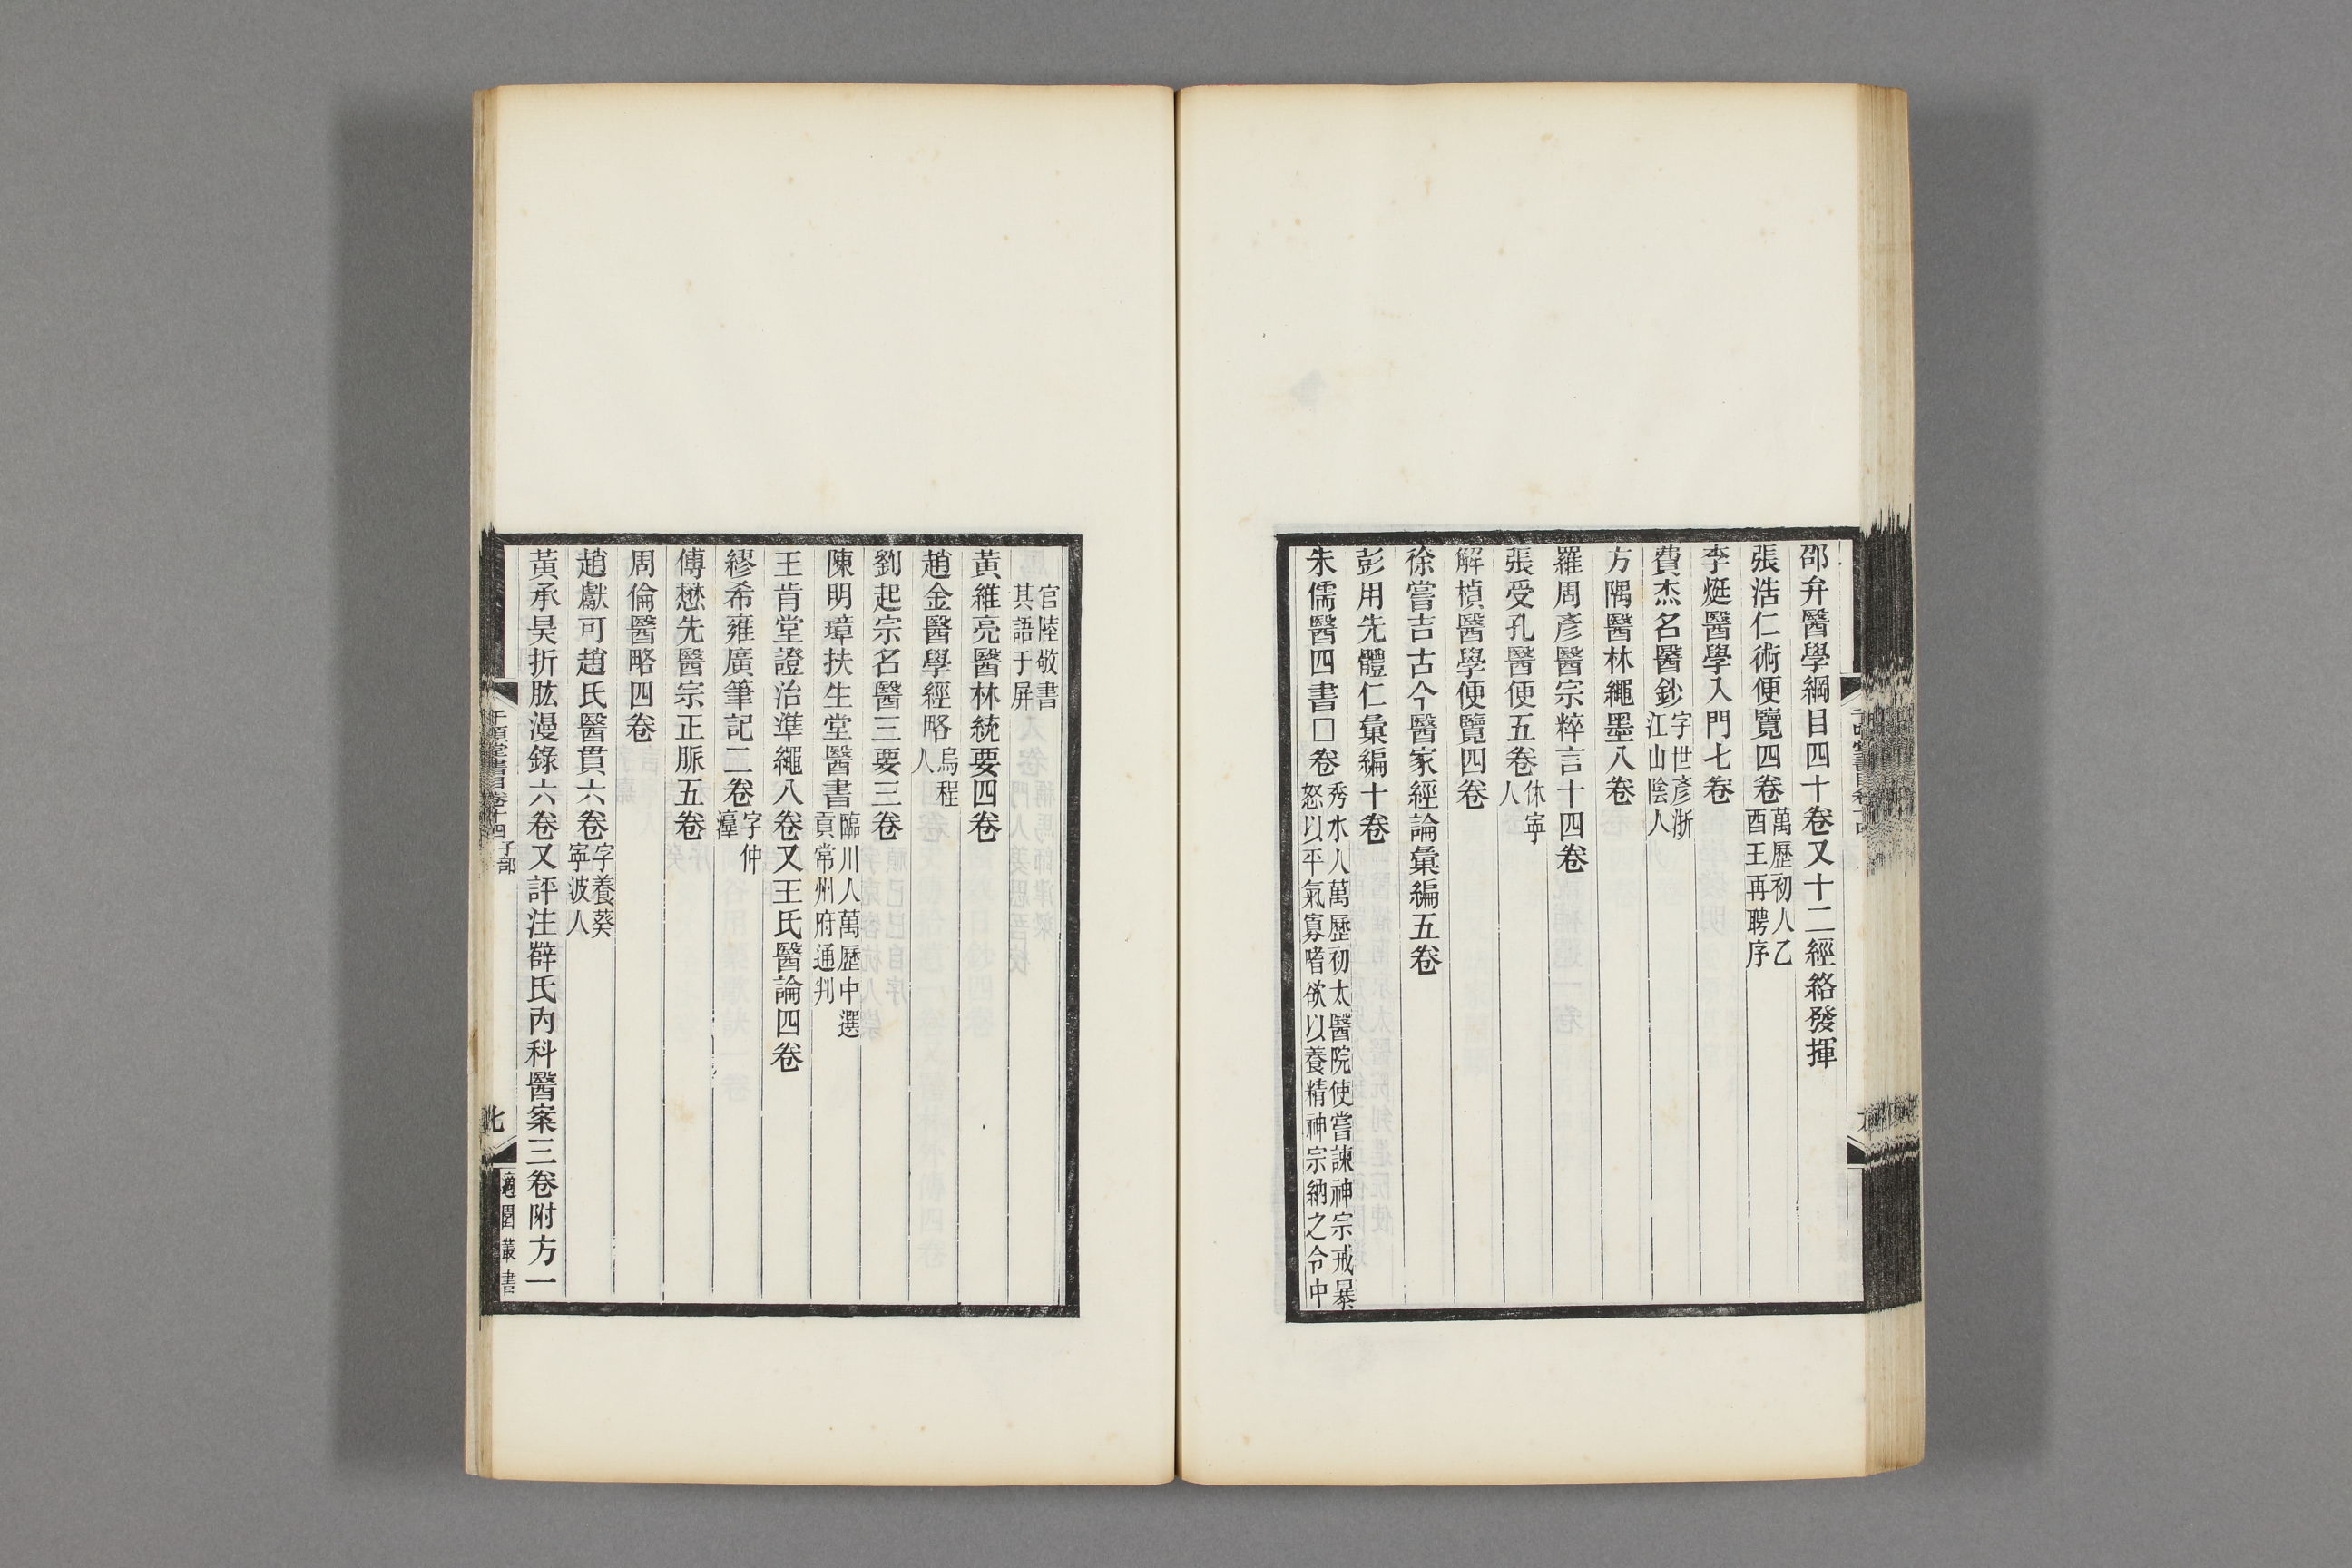 邵弁醫學綱目四十卷又十二經絡發揮
張浩仁術便覽四卷萬歷初人乙
酉王再聘序
李梃醫學入門七卷
費杰名醫鈔字世彥浙
江山陰人
方隅醫林繩墨八卷
羅周彥醫宗粹言十四卷
張受孔醫便五卷休寧
人
解楨醫學便覽四卷
徐嘗吉古今醫家經論彙編五卷
彭用先體仁彙編十卷
朱儒醫四書□卷秀水人萬歷初太醫院使嘗諫神宗戒暴
怒以平氣寡嗜欲以養精神宗納之令中
官陸敬書
其語于屏
黃維亮醫林統要四卷
趙金醫學經略烏程
人
劉起宗名醫三要三卷
陳明璋扶生堂醫書臨川人萬歷中選
貢常州府通判
王肯堂證治準繩八卷又王氏醫論四卷
繆希雍廣筆記二卷字仲
淳
傅懋先醫宗正脈五卷
周倫醫略四卷
趙獻可趙氏醫貫六卷字養葵
寧波人
黃承昊折肱漫錄六卷又評注薛氏內科醫案三卷附方一
千頃堂書目卷十四 子部
適園叢書